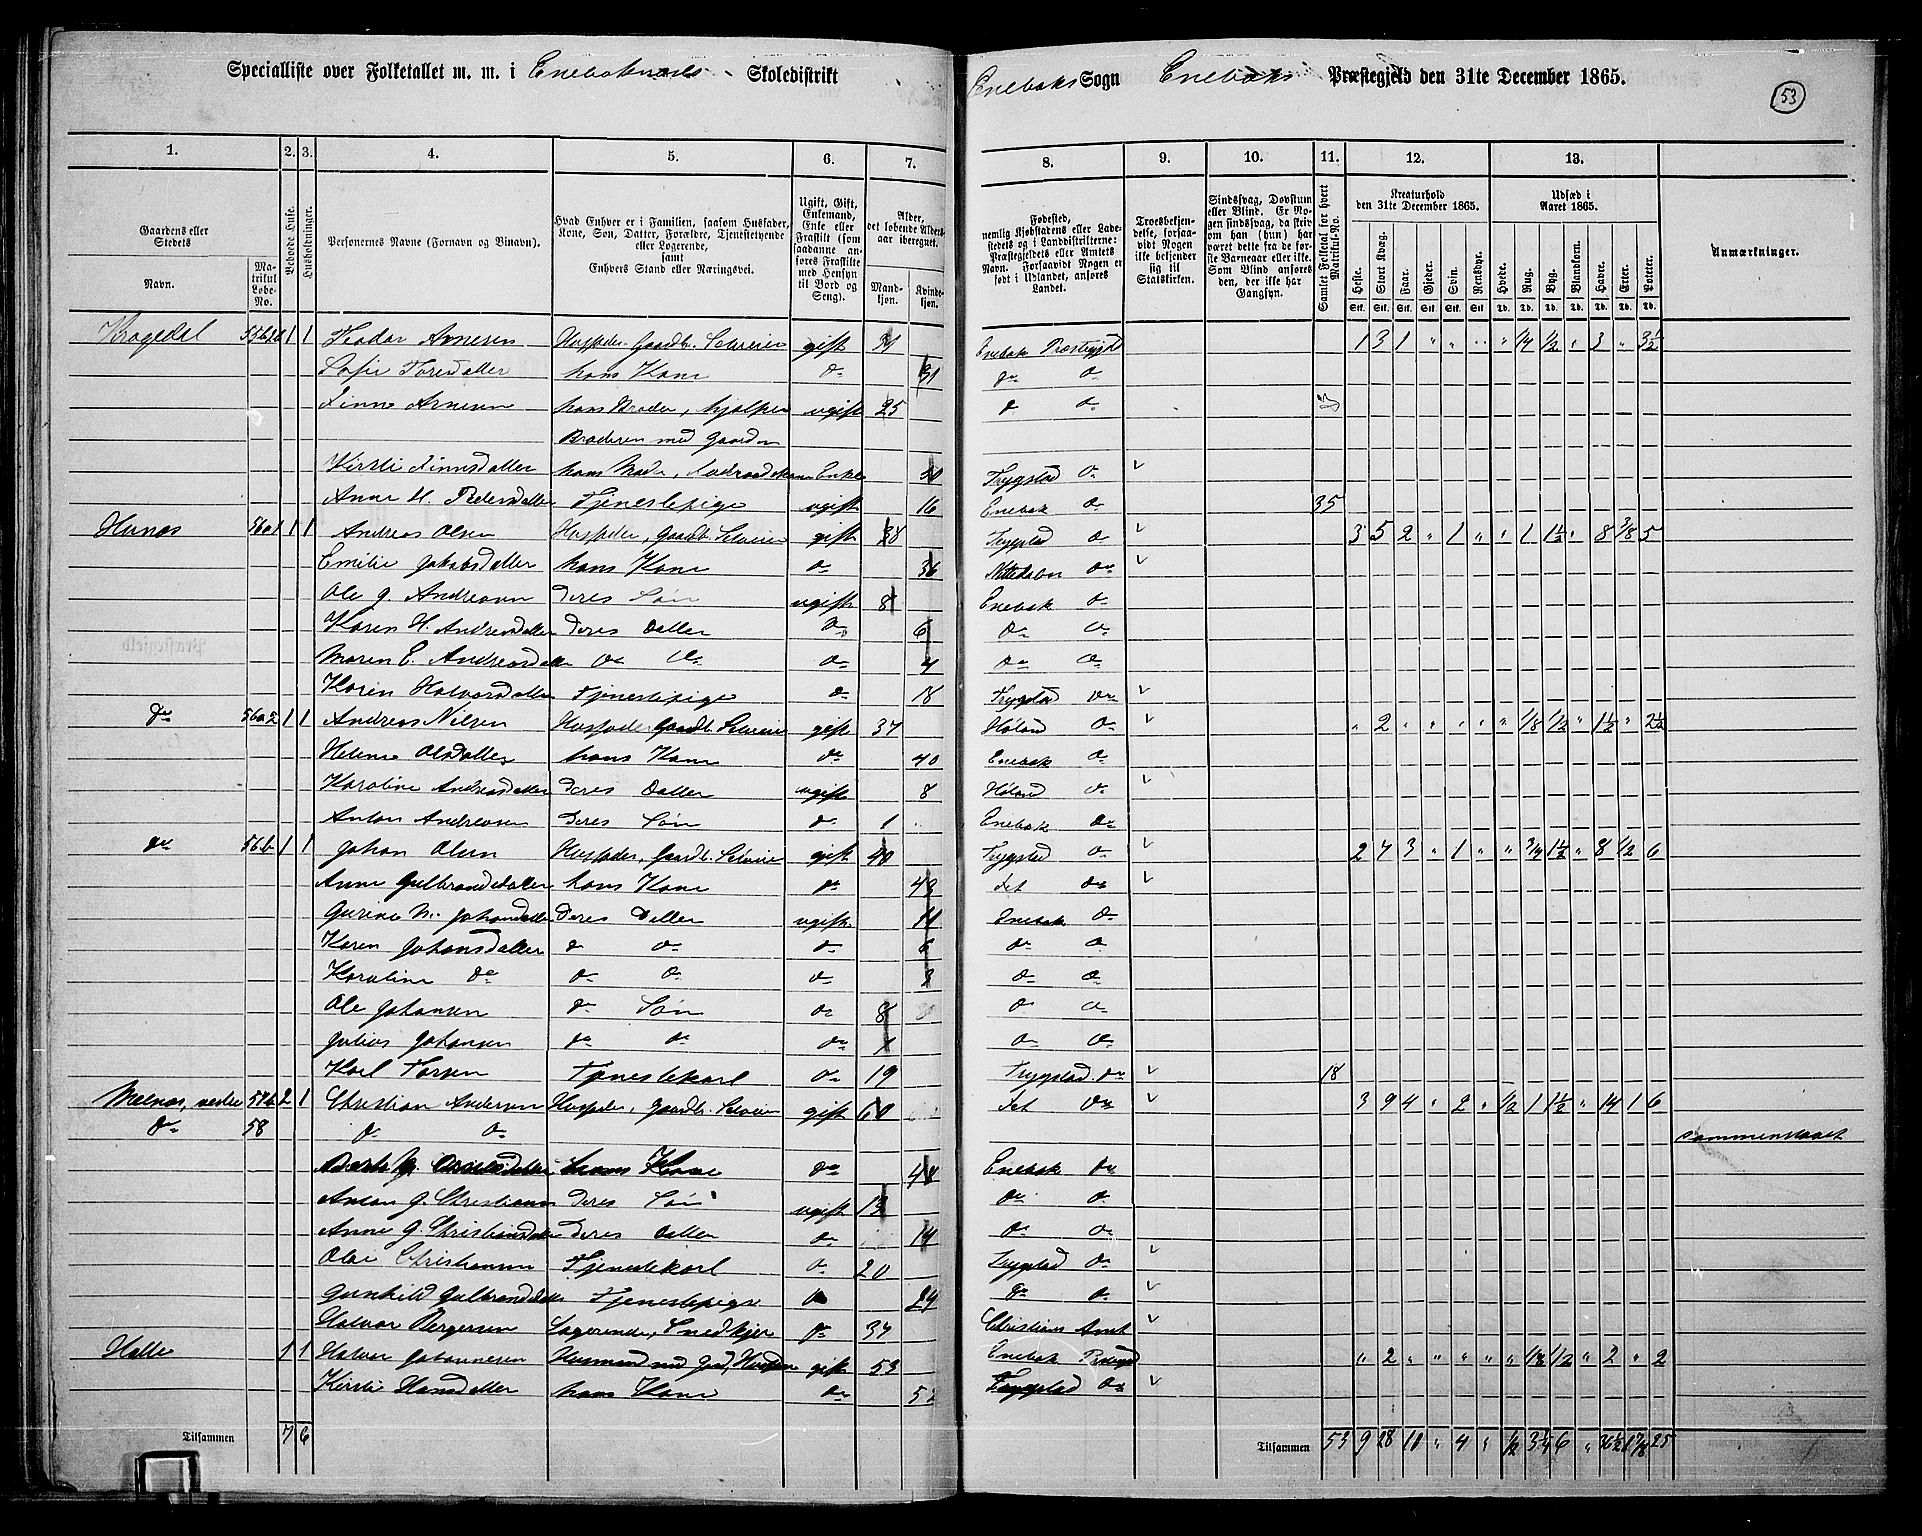 Specialliste over Folketallet m. m. i Enebaknæs Skoledistrikt Enebaks Sogn Enebaks Præstegjeld den 31te December 1865.
53
1. 2. 3. 4. 5. 6. 7. 8. 9. 10. 11. 12. 13.
Gaardens eller Stedets
Navn.
Matrikul Løbe-No.
Beboede Huse.
Husholdninger.
Personernes Navne (Fornavn og Binavn).
Hvad Enhver er i Familien, saasom Husfader, Kone, Søn, Datter, Forældre, Tjenestetyende eller Logerende, samt Enhvers Stand eller Næringsvei.
Ugift, Gift, Enkemand, Enke eller Fraskilt (som saadanne anføres Fraskilte med Hensyn til Bord og Seng).
Alder, det løbende Aldersaar iberegnet.
Mandkjøn. Kvindekjøn.
Fødested, nemlig Kjøbstadens eller Ladestedets og i Landdistrikterne: Præstegjeldets eller Amtets Navn. Forsaavidt Nogen er født i Udlandet, anføres Landet.
Troesbekjendelse, forsaavidt Nogen ikke bekjender sig til Statskirken.
Sindssvag, Døvstum eller Blind. Er Nogen sindssvag, da skrives om han (hun) har været dette fra de første Barneaar eller ikke. Som Blind anføres den, der ikke har Gangsyn.
Samlet Folketal for hvert Matrikul-No.
Kreaturhold den 31te December 1865.
Heste. Stort Kvæg. Faar. Gjeder. Svin. Rensdyr.
Udsæd i Aaret 1865.
Hvede. Rug. Byg. Blandkorn. Havre. Erter. Poteter.
Anmærkninger.
Kragedal 1 1 Arnesen Husfader. Gaardb. Selveier gift 31 Enebak Præstegjd 1 3 1 " " " " 1/4 1/2 " 3 " 3½
Sofie Toresdatter hans Kone do 31 do do
Finn Arnesen hans Broder, hjælper ugift 25 do do
Broderen med Gaarden
Kirsti Finnsdatter hans Moder, Enke Trygstad do
Anne H. Pedersdatter Tjenestepige ugift 16 Enebak do 35
56a1 1 1 Andreas Olsen Husfader, Gaardb. Selveier gift 38 Trygstad do 3 5 2 " 1 " " 1 1½ " 8 3/8 5
Emilie Jakobsdatter hans Kone do 36 Nittedalen do
Ole G. Andreasen Deres Søn ugift 8 Enebak do
Karen H. Andreasdatter Deres Datter do 6 do do
Maren E. Andreasdatter do do do 4 do do
Karen Halvorsdatter Tjenestepige do 18 Trygstad do
do 56a2 1 1 Andreas Nilsen Husfader Gaardb. Selveier gift 37 Høland do " 2 " " " " " 1/8 1/2 " 1½ " 2½
Helene Olsdatter hans Kone do 40 Enebak do
Karoline Andreasdatter Deres Datter ugift 8 Høland do
Anton Andreasen Deres Søn do 1 Enebak do
do 56b 1 1 Johan Olsen Husfader, Gaardb. Selveier gift 40 Trygstad do 2 7 3 " 1 " " 3/4 1½ " 8 1/2 6
Anne Gulbrandsdatter hans Kone do 43 Fet do
Gurine M. Johansdatter Deres Datter ugift 11 Enebak do
Karen Johansdatter do do do 6 do do
Karoline do do do do 3 do do
Ole Johansen do Søn do 8 do do
Julius Johansen do do do 1 do do
Karl Torsen Tjenestekarl do 19 Trygstad do 18
Melnæs, vestre 2 1 Christian Andersen Husfader, Gaardb. Selveier gift 60 Fet do 3 9 4 " 2 " 1/2 1 1½ " 14 1 6
do 58 do do
hans Kone do 48 Enebak do
Anton G. Christiansen Deres Søn ugift 13 do do
Anne G. Christiansdatter Deres Datter do 14 do do
Olai Christiansen Tjenestekarl do 20 Trygstad do
Gunhild Gulbrandsdatter Tjenestepige do 24 do do
Halvor Bergersen Logerende, Snedkjer do 37 Christians Amt
Halle 1 1 Halvor Johannesen Husmand med Jord, gift 53 Enebak " 2 " " " " " 1/8 1/2 " 2 " 2
Kirsti Hansdatter hans Kone do 52 Trygstad do
Tilsammen 7 6 Tilsammen 53 9 28 10 " 4 " 1/2 6 " 36½ 1 7/8 25